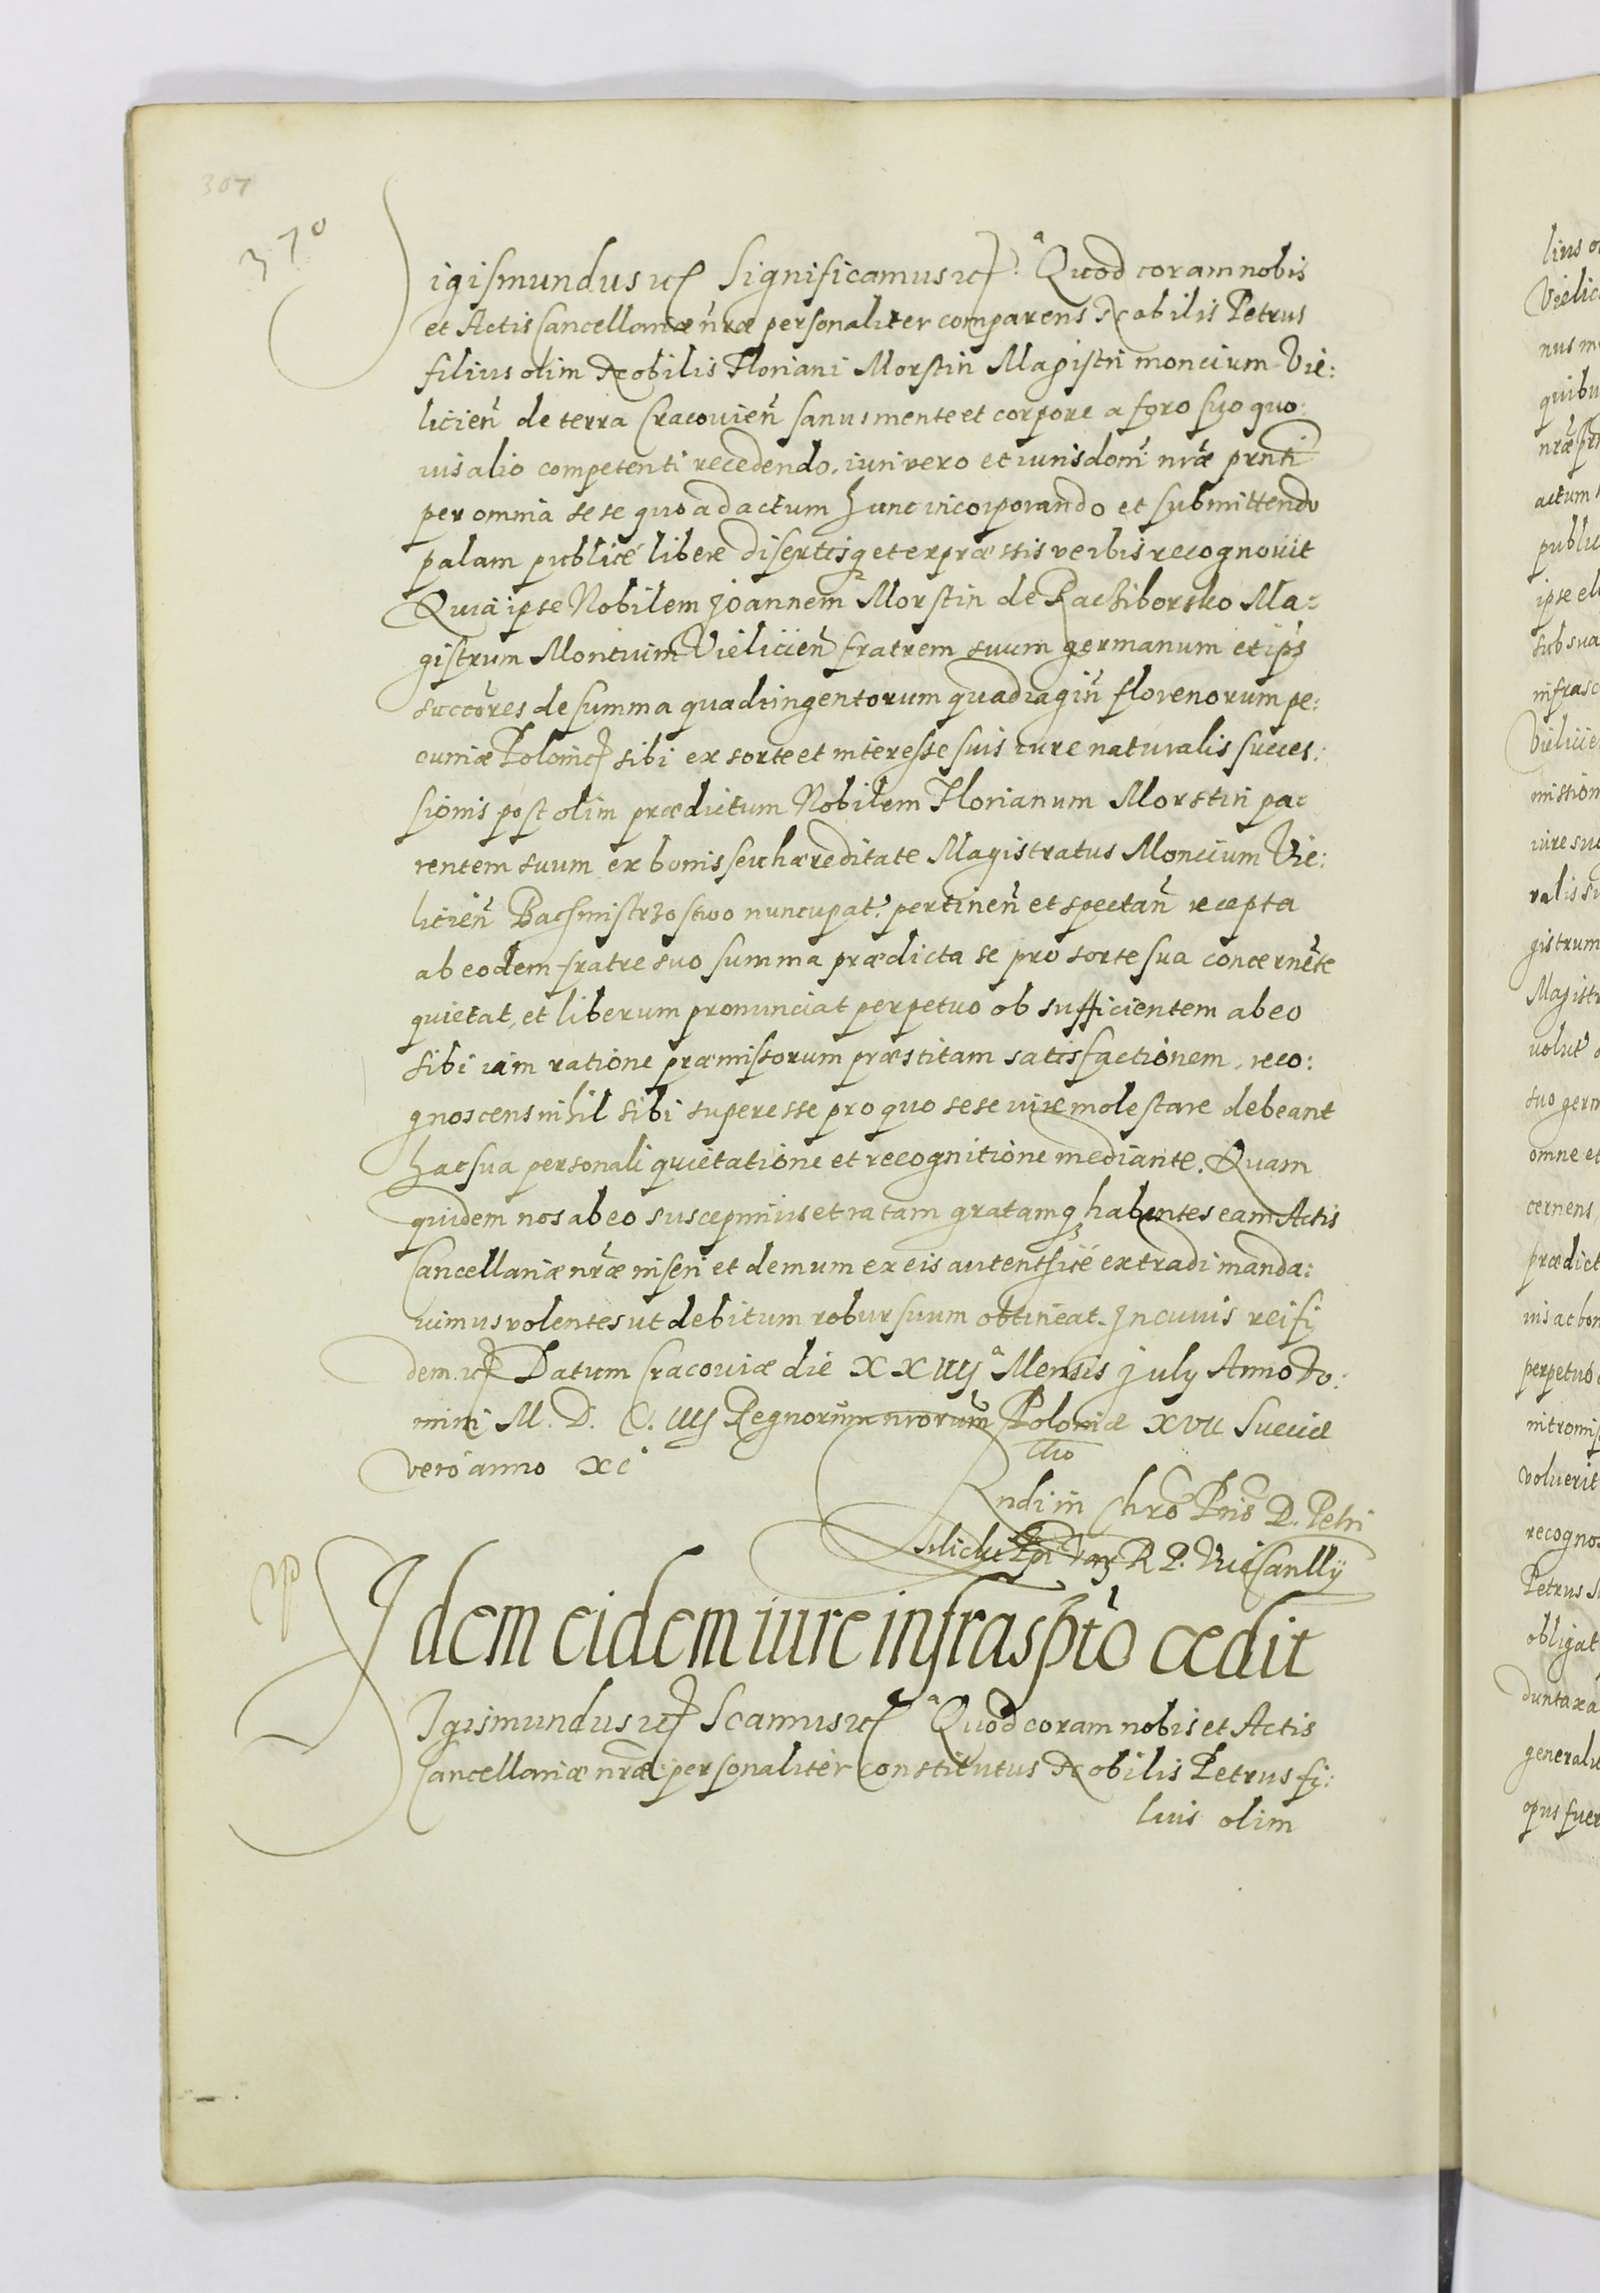 307
370
Sigismundus etc Significamus etc. Quod coram nobis
et Actis Cancellariæ nr̄æ personaliter comparens Nobilis Petrus
filius olim Nobilis Floriani Morstin Magistri moncium Vie:
licien̄ de terra Cracovien̄ sanus mente et corpore a foro suo quo:
vis alio competenti recedendo, iuri vero et iurisdoni nr̄æ prn̄ti
per omnia sese quo ad actum hunc incorporando et submittendo
palam publicé libere disertisq et expræssis verbis recognovit
Quia ipse Nobilem Joannem Morstin de Rachiborsko Ma:
gistrum Montium Vielicien̄ fratrem suum germanum et ips
succōres de summa quadringentorum quadragin̄ florenorum pe:
cuniæ Polonic sibi ex sorte et interesse suis iure naturalis succes:
sionis post olim prædictum Nobilem Florianum Morstin pa:
rentem suum ex bonis seu hæreditate Magistratus Moncium Vie:
licien̄ Bachmistrzostwo nuncupat. pertinen̄ et spectan̄ recepta
ab eodem fratre suo summa prædicta se pro sorte sua concernēte
quietat, et liberum pronunciat perpetuo ob sufficientem ab eo
sibi iam ratione præmissorum præstitam satisfactionem, reco:
gnoscens nihil sibi superesse pro quo sese iure molestare debeant
hac sua personali quietatione et recognitione mediante. Quam
quidem nos ab eo suscepimus et ratam gratamq habentes eam Actis
Cancellariæ nr̄æ inseri et demum ex eis autenthicé extradi manda:
vimus volentes ut debitum robur suum obtineat. In cuius rei fi
dem etc Datum Cracoviæ die XXIIIJa Mensis July Anno Do:
mini M. D. C. IIIJ Regnorum nrorum Poloniæ XVII Sueciæ
vero anno XI
Rndi in Chro Pris D. Petri
Tilicki Epi Var R P. ViceCanllÿ
Idem eidem iure infrasp̄to cedit
Sigismundus etc Scamus etc Quod coram nobis et Actis
Cancellariæ nr̄æ personaliter constitutus Nobilis Petrus fi:
lius olim